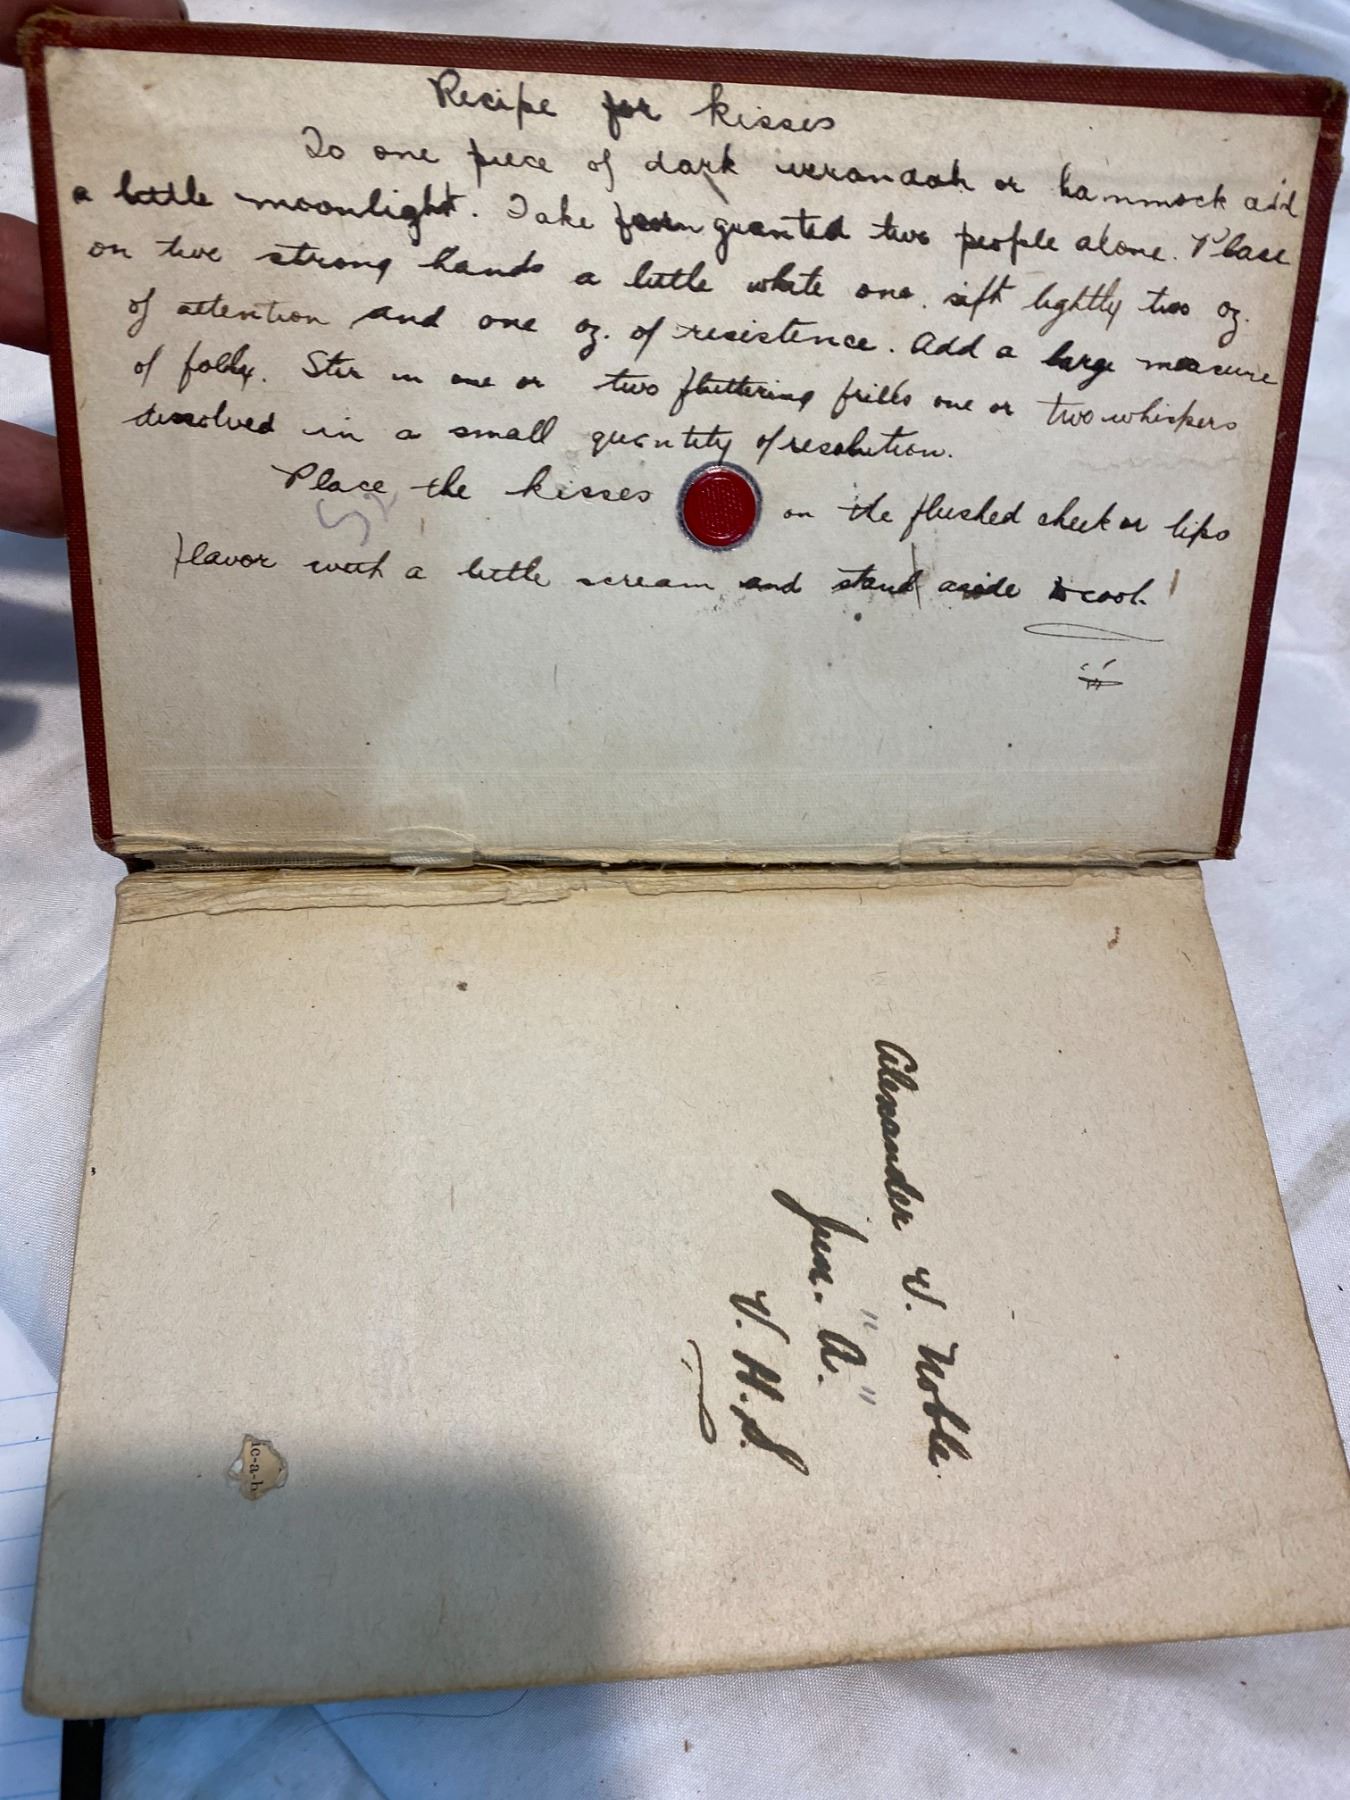 Recipe for kisses
To one piece of dark verandah or hammock add
a little moonlight. Take for granted two people alone. Place
on two strong hands a little white one. sift lightly two oz.
of attention and one oz. of resistence. Add a large measure
of folly. Stir in one or two fluttering frills one or two whispers
dissolved in a small quantity of resolution.
Place the kisses on the flushed cheek or lips
flavor with a little scream and stand aside to cool.
Alexander V. Noble.
Jun. "A."
V. H. S.
ic-a-b